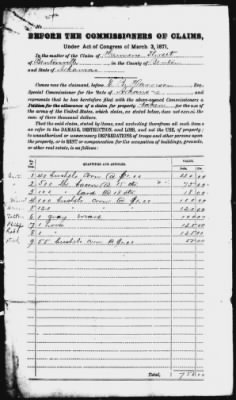 BEFORE THE COMMISSIONERS OF CLAIMS,
Under Act of Congress of March 3, 1871.
In the matter of the Claim of
of Bentonville in the County of Benton
and State of Arkansas
Comes now the claimant, before
Special Commissioner for the State of Arkansas and
represents that he has heretofore filed with the above-named Commissioners a
Petition for the allowance of a claim for property taken for the use of the
army of the United States, which claim, as stated below, does not exceed the
sum of three thousand dollars.
That the said claim, stated by items, and excluding therefrom all such items
as refer to the DAMAGE, DESTRUCTION and LOSS, and not the USE, of property;
to unauthorized or unnecessary DEPREDATIONS by troops and other persons
upon property, or to RENT or compensation for the occupation of buildings, grounds,
or other real estate, is as follows:
No. QUANTITIES AND ARTICLES. VALUE.
bushels Corn @ $1.00
2 500 lbs Bacon @ 15 cts 75 00
3 100 " Lard @ 18 cts 18 00
4 100 bushels corn @ $1.00 100 00
5 120 " " " 120 00
6 1 gray mare
7 1 horse 125 00
8 1 " 125 00
9 55 bushels corn @ $1.00 55 00
Total, $